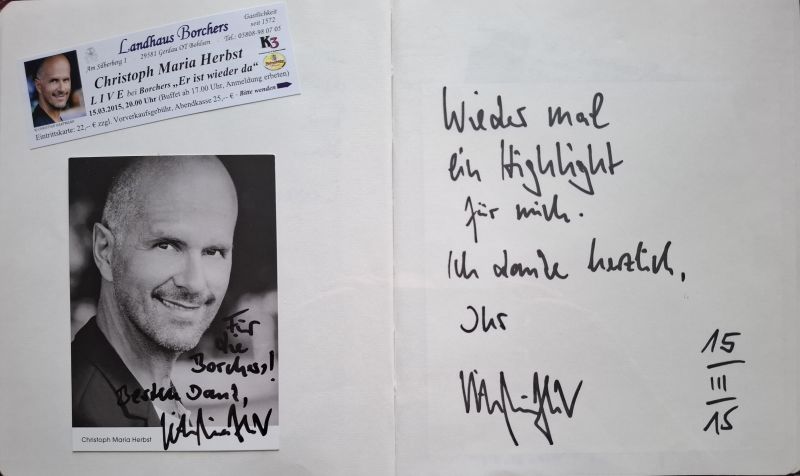 Landhaus Borchers
Gastlichkeit
seit 1572
Am Silberberg 1
29581 Gerdau OT Bohlsen
Tel.: 05808-98 07 05
K3
Christoph Maria Herbst
LIVE bei Borchers „Er ist wieder da“
15.03.2015, 20.00 Uhr (Buffet ab 17.00 Uhr, Anmeldung erbeten)
Eintrittskarte: 22,– € zzgl. Vorverkaufsgebühr, Abendkasse 25,– € - Bitte wenden
Für
die
Borchers!
Besten Dank,
Christoph Maria Herbst
Wieder mal
ein Highlight
für mich.
Ich danke herzlich,
Ihr
15
III
15